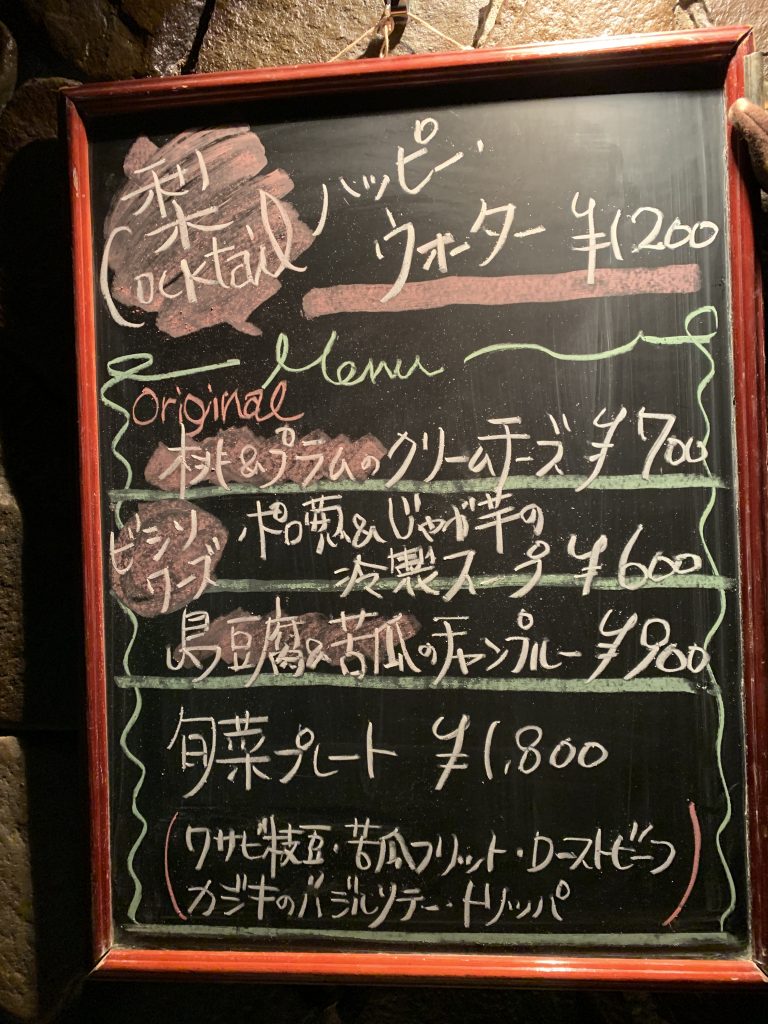 梨 ハッピー・
Cocktail ウォーター ¥1200
Menu
Original
桃&プラムのクリームチーズ ¥700
ビシソワーズ ポロ葱&じゃが芋の
冷製スープ ¥600
島豆腐&苦瓜のチャンプルー ¥900
旬菜プレート ¥1,800
(ワサビ枝豆・苦瓜フリット・ローストビーフ
カジキのバジルソテー・トリッパ)